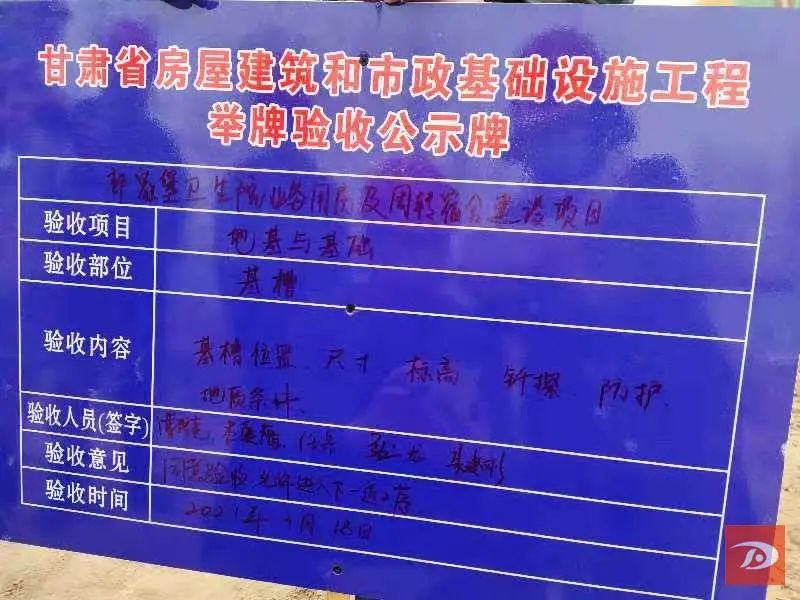 甘肃省房屋建筑和市政基础设施工程
举牌验收公示牌
郭家堡卫生院业务用房及周转宿舍建设项目
验收项目 地基与基础
验收部位 基槽
验收内容 基槽位置、尺寸、标高、钎探、防护、
地质条件、
验收人员(签字)
验收意见 同意验收 允许进入下一道工序
验收时间 2021年 月 18日